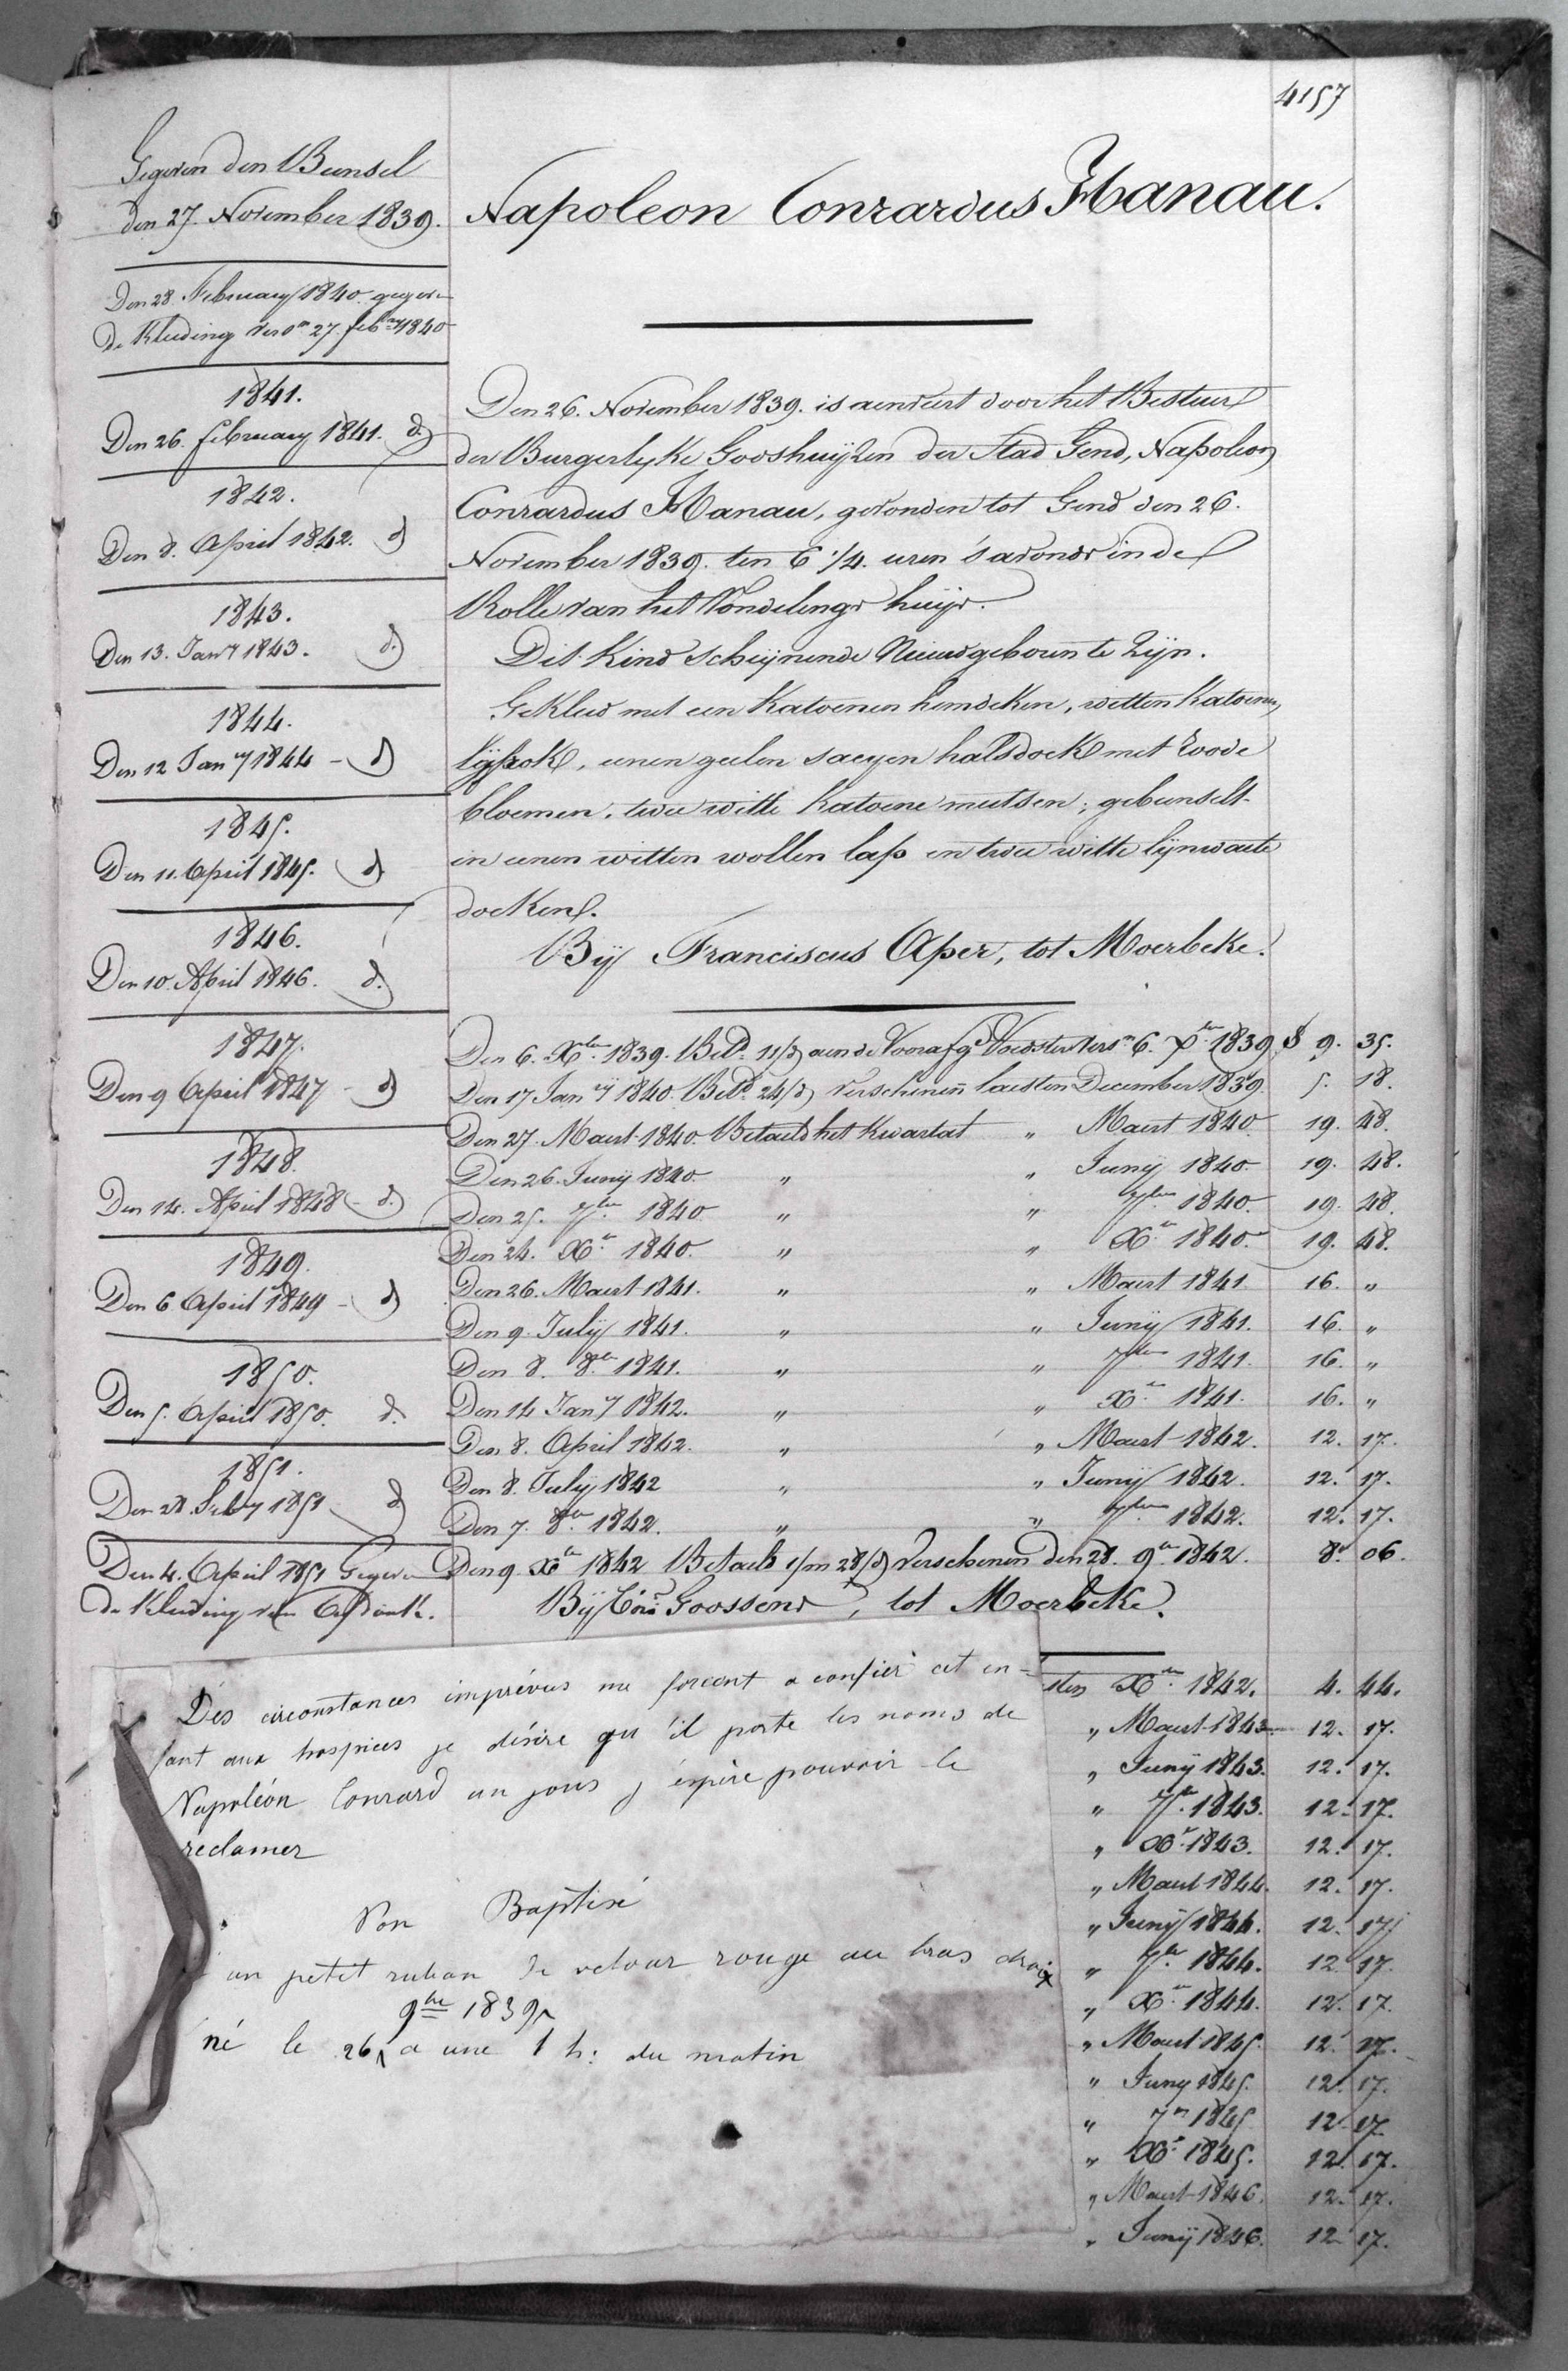 4157
Gegeven den Bunsel
den 27. November 1839.
Den 28. February 1840. gegeven
de Kleeding vers.n 27. feb.ry 1840
1841.
Den 26. february 1841. d.
1842.
Den 8. April 1842. d)
1843.
Den 13. Jan.y 1843. d.)
1844.
Den 12 Jan.ry 1844 - d)
1845.
Den 11. April 1845. d.
1846.
Den 10. April 1846. d.)
1847.
Den 9 April 1847 - d)
1848.
Den 14. April 1848 - d.)
1849.
Den 6 April 1849 - d)
1850.
Den 5. April 1850. d.
1851.
Den 28. Feb.y 1851 d)
Den 4. April 1851 Gegeven
de Kleeding van
Napoleon Conrardus Hanau.
Den 26. November 1839. is aenveert door het Bestuer
der Burgerlyke Godshuyzen der Stad Gend, Napoleon
Conrardus Hanau, gevonden tot Gend den 26.
November 1839. ten 6 1/4. uren 's avonds in de
Rolle van het Vondelings huys.
Dit Kind scheynende Nieuwgeboren te Zijn.
Gekleed met een Katoenen hemdeken, witten Katoenen
lyfrok, eenen geelen saeyen halsdoek met roode
bloemen, twee witte katoene mutsen; gebunselt
in eenen witten wollen lap en twee witte lijnwaete
doeken.
Bij Franciscus Aper, tot Moerbeke.
Den 6. X.ber 1839. Bet.d 11/d) aen de Voorafg.e Voedster vers.n 6. X.ber 1839 $ 9. 35.
Den 17 Jan.ry 1840. Bet.d 24/d) verschenen laesten December 1839. 5. 18.
Den 27. Maert 1840 Betaeld het Kwartael " Maert 1840 19. 48.
Den 26. Junij 1840 " " Junij 1840 19. 48.
Den 25. 7.ber 1840 " " 7.ber 1840. 19. 48.
Den 24. X.r 1840. " " X.r 1840. 19. 48.
Den 26. Maert 1841. " " Maert 1841 16. "
Den 9. Julij 1841. " " Junij 1841. 16. "
Den 8. 8.ber 1841. " " 7ber 1841. 16. "
Den 14 Jan.ry 1842. " " X.r 1841. 16. "
Den 8. April 1842. " " Maert 1842. 12. 17.
Den 8. Julij 1842 " " Junij 1842. 12. 17.
Den 7. 8.ber 1842. " " 7ber 1842. 12. 17.
Den 9 X.r 1842 Betaeld 1/m 28/d) verschenen den 28. 9.r 1842. 8. 06.
Bij Goossens, tot Moerbeke.
sten X.ber 1842. 4. 44.
" Maert 1843 12. 17.
" Junij 1843. 12. 17.
" 7.br 1843. 12. 17.
" X.r 1843. 12. 17.
" Maert 1844. 12. 17.
" Junij 1844. 12. 17.
" 7.br 1844. 12. 17.
" X.r 1844. 12. 17.
" Maert 1845. 12. 17.
" Juny 1845. 12. 17.
" 7.r 1845 12. 17.
" X.r 1845. 12. 17.
" Maert 1846. 12. 17.
" Junij 1846. 12. 17.
Dés circonstances imprévus me forcent a confier cet en-
fant aux hospices je désire qu'il porte les noms de
Napoléon Conrard un jours j'éspère pouvoir le
reclamer
Non Baptisé
un petit ruban de velour rouge au bras droit
9bre 1839
né le 26 a une 1 h: du matin